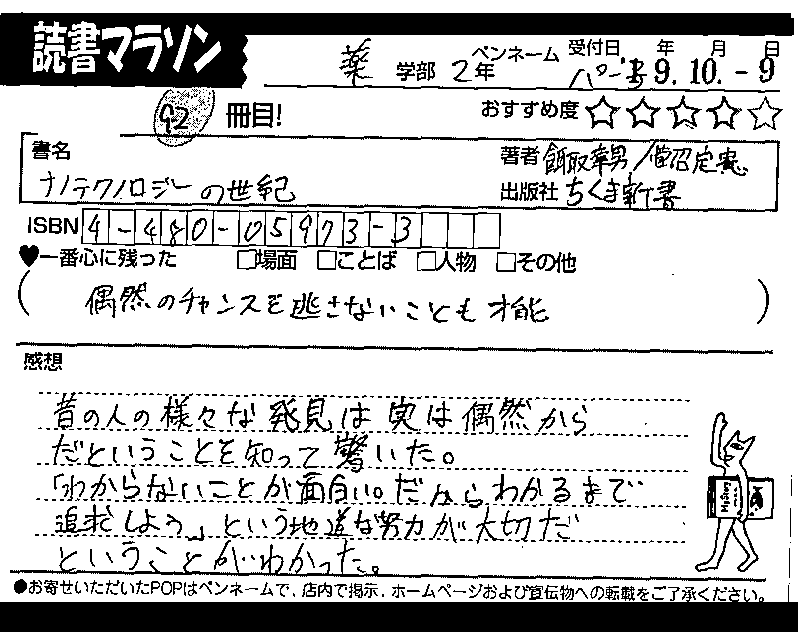 読書マラソン
薬 学部 2年 ペンネーム 受付日 年 月 日
'9.10.-9
92 冊目! おすすめ度 ☆☆☆☆☆
書名 著者 飯取幸男/菅沼定憲
ナノテクノロジーの世紀 出版社 ちくま新書
ISBN 4-480-05973-3
♥一番心に残った □場面 □ことば □人物 □その他
(偶然のチャンスを逃さないことも才能)
感想
昔の人の様々な発見は実は偶然から
だということを知って驚いた。
「わからないことが面白い。だからわかるまで
追求しよう」という地道な努力が大切だ
ということがわかった。
●お寄せいただいたPOPはペンネームで、店内で掲示、ホームページおよび宣伝物への転載をご了承ください。